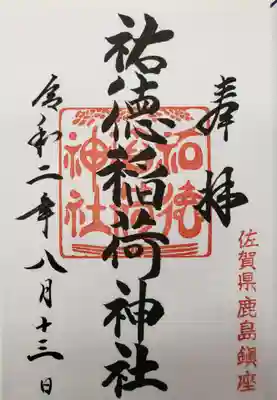 奉拝
佐賀県鹿島鎮座
祐徳稲荷神社
祐徳
稲荷
神社
令和二年八月十三日